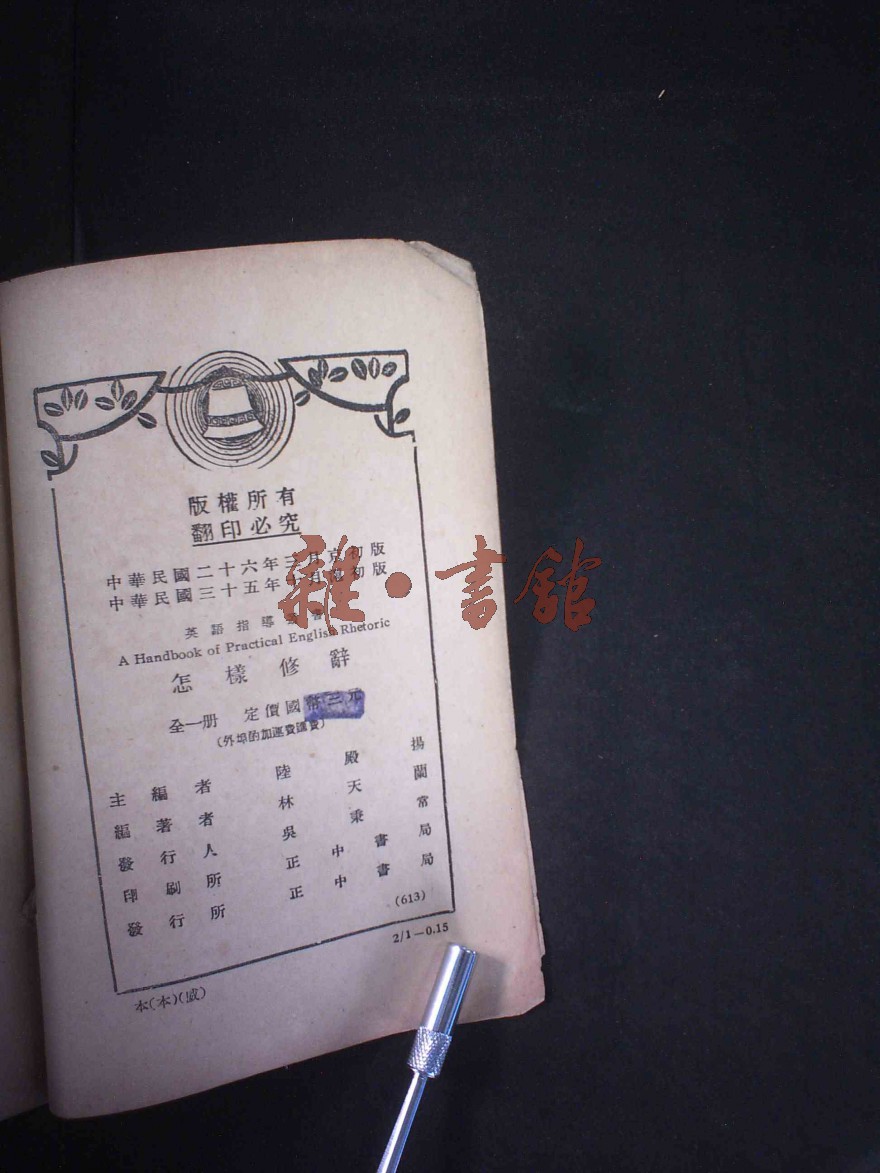 版權所有
翻印必究
中華民國二十六年三月京初版
中華民國三十五年十月滬初版
英語指導叢書
A Handbook of Practical English Rhetoric
怎樣修辭
全一册 定價國幣三元
(外埠酌加運費匯費)
主編者 陸殿揚
編著者 林天蘭
發行人 吳秉常
印刷所 正中書局
發行所 正中書局
(613)
2/1—0.15
本(本)(威)
雜·書館